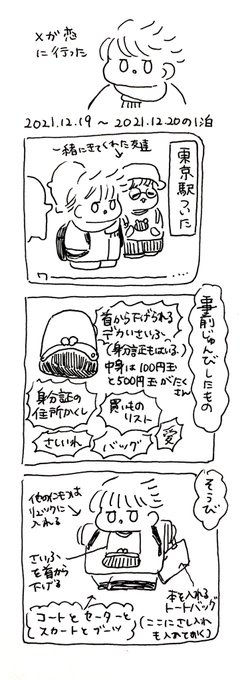 Xが恋
に行った
2021.12.19 〜 2021.12.20の1泊
東京駅ついた
一緒にきてくれた友達
事前じゅんびしたもの
首から下げられる
デカいさいふ
(身分証もはいる)
中身は100円玉
と500円玉がたく
さん
身分証の
住所かくし
買いもの
リスト
さしいれ
バッグ
愛
そうび
他のにもつは
リュックに
入れる
さいふ
を首から
下げる
本を入れる
トートバッグ
(ここにさし入れ
も入れておく)
コートとセーターと
スカートとブーツ